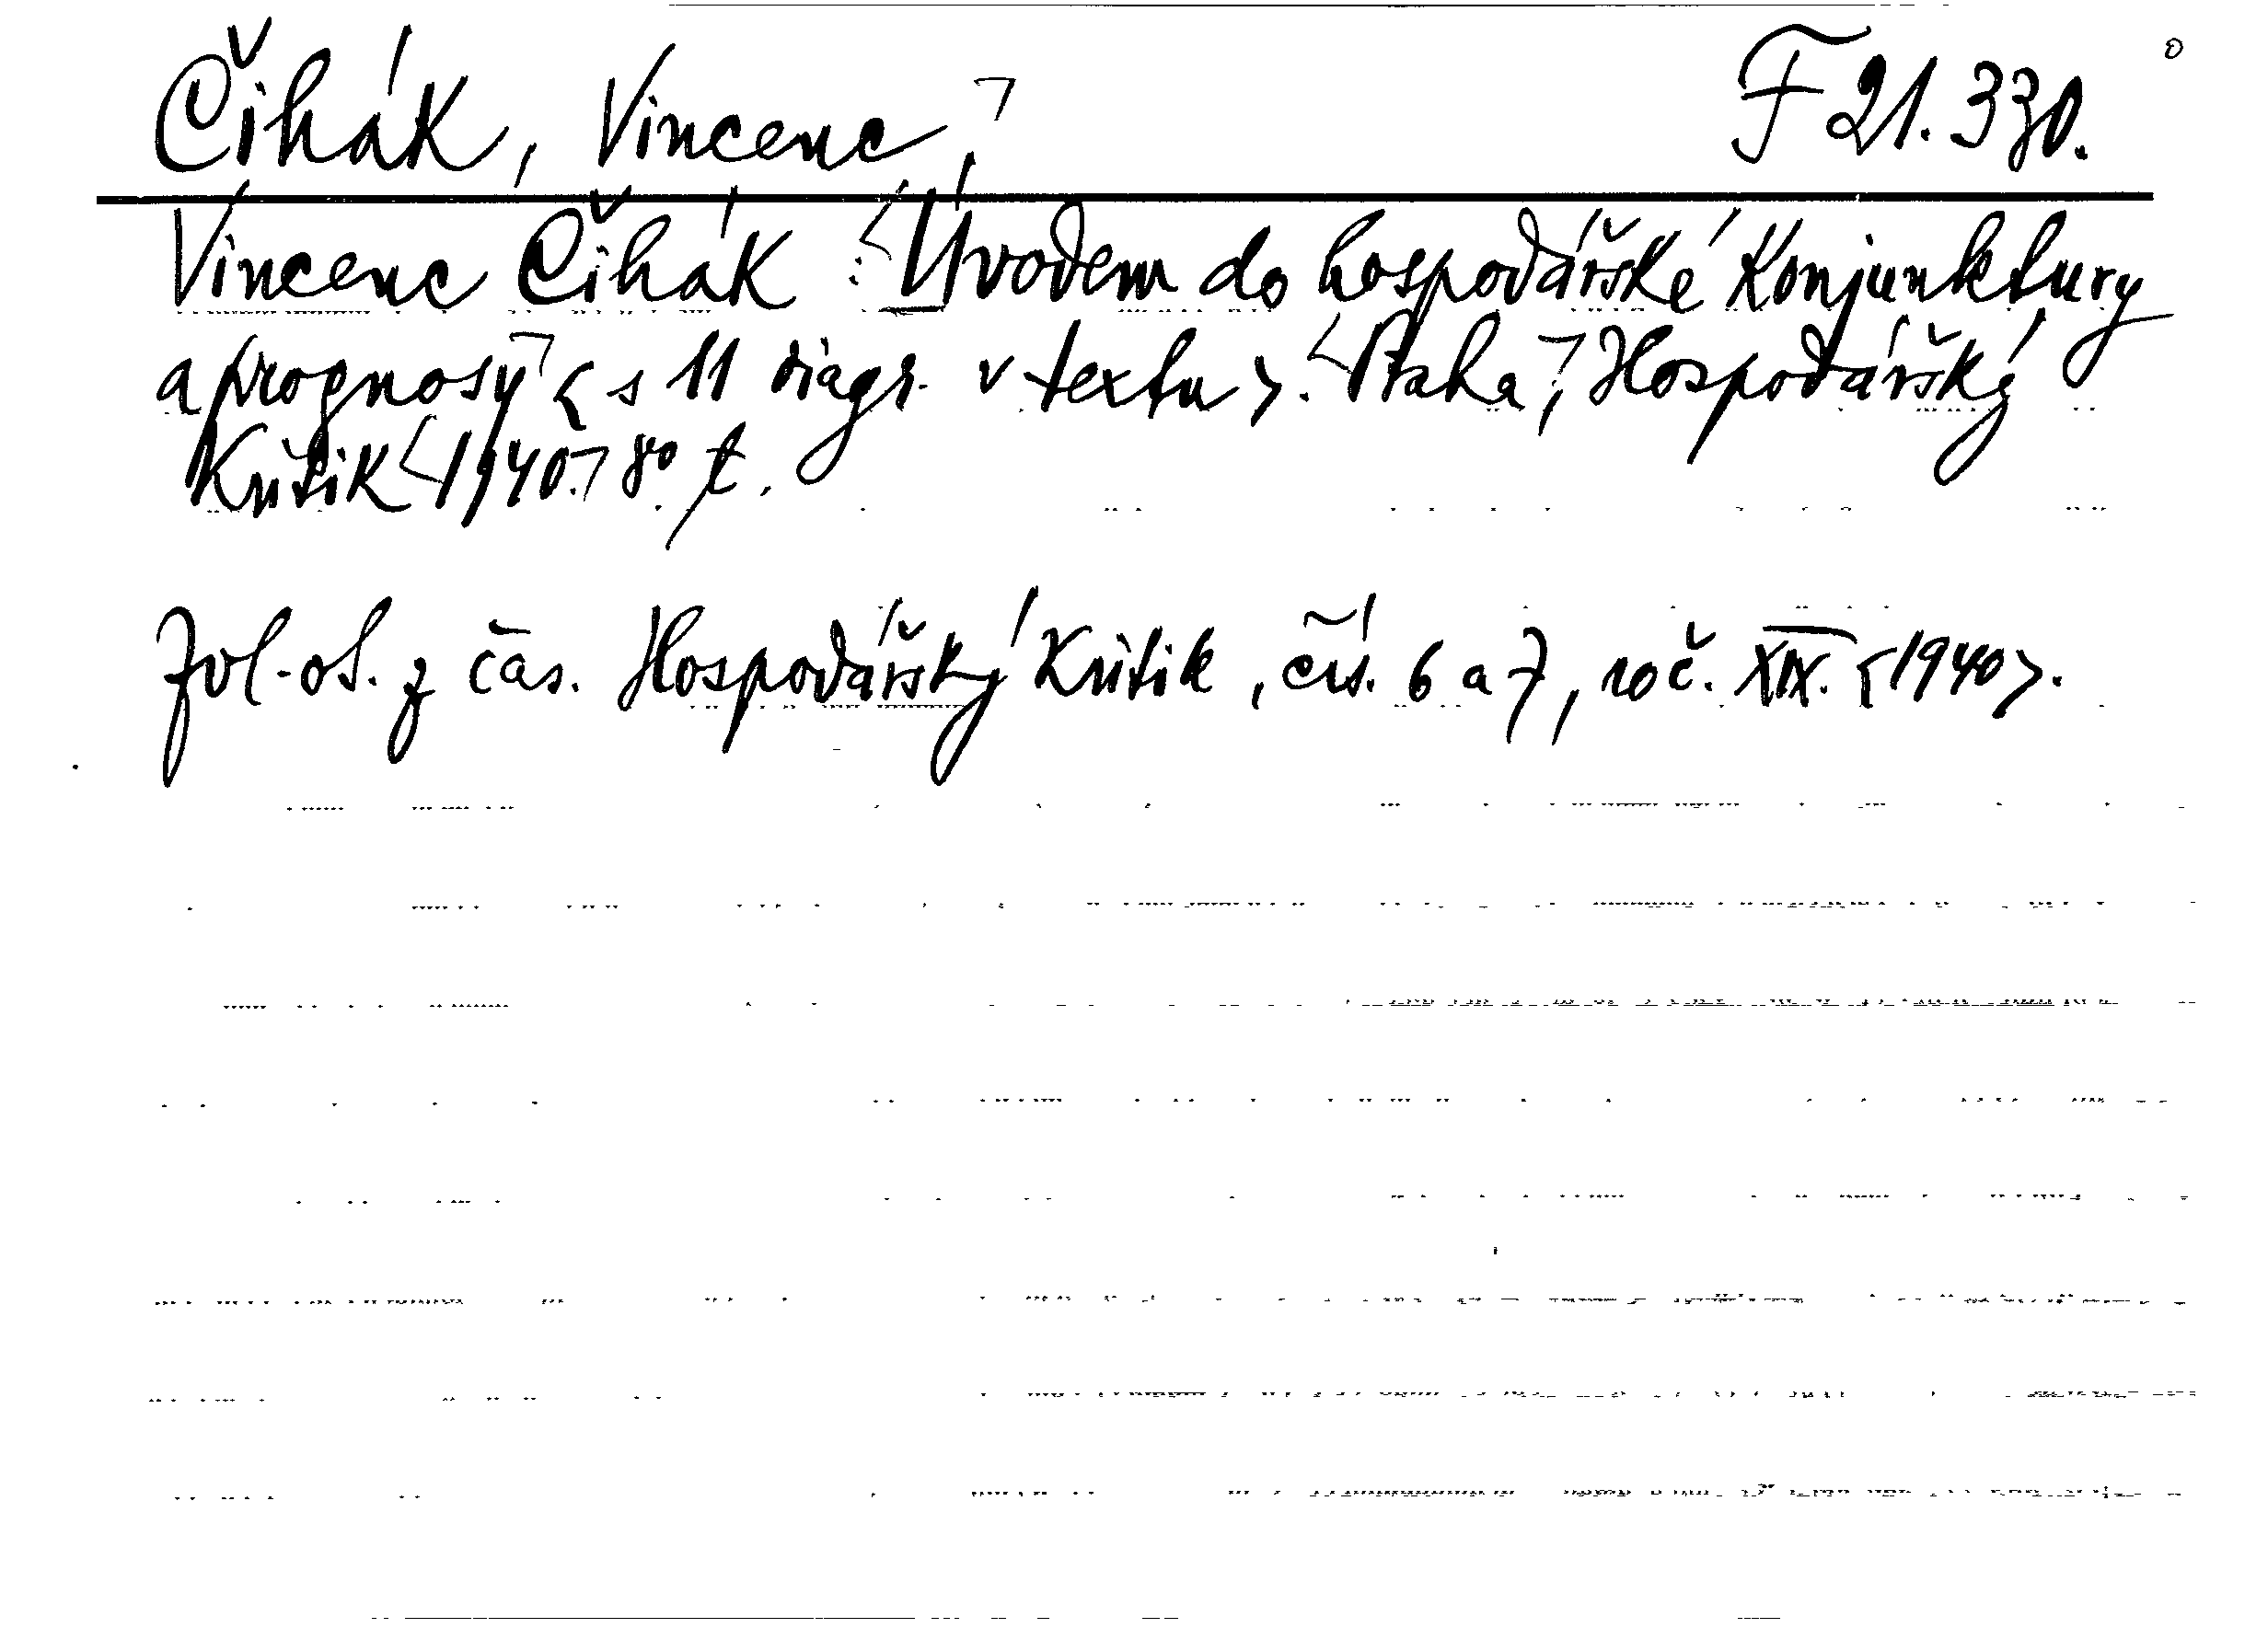 Čihák, Vincenc ┐ F 21.330.
Vincenc Čihák : <Úvodem do hospodářské konjunktury
a prognosy ┐ < s 11 diagr. v textu >. <Praha, ┐ Hospodářský
Kritik <1940. ┐ 8° t.
Zvl. ot. z čas. Hospodářský Kritik, čís. 6 a 7, roč. XIX. <1940>.